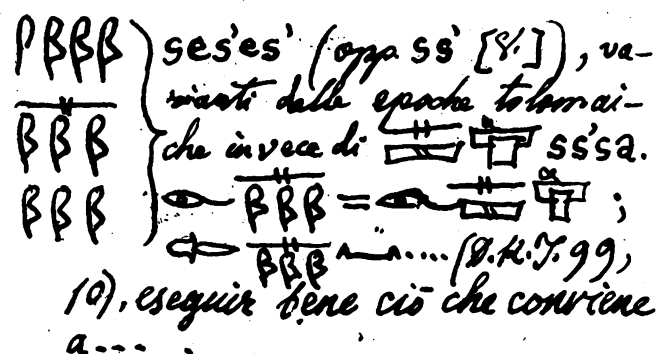 ses'es' (opp. ss' [V.]), va-
rianti delle epoche tolomai-
che invece di ss'sa.
= ;
.... (D.H.J. 99,
10), eseguir bene ciò che conviene
a....